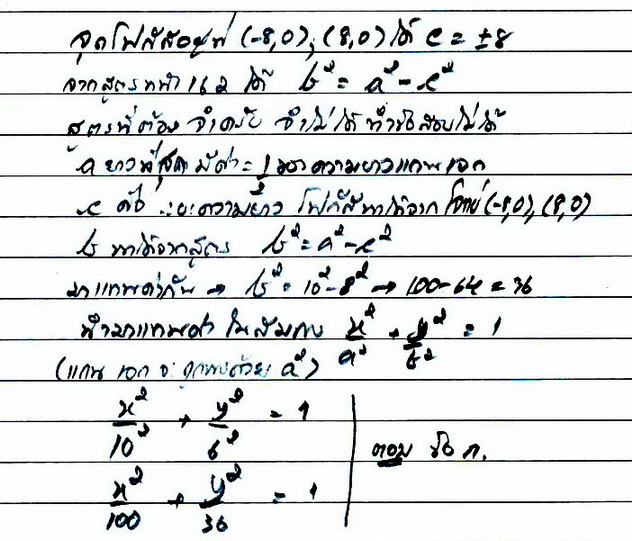 จุดโฟกัสอยู่ที่ (-8,0), (8,0) ได้ c = ±8
จากสูตรหน้า 162 ได้ b² = a² - c²
สูตรที่ต้อง จำครับ จำไม่ได้ ทำข้อสอบไม่ได้
a ยาวที่สุด มีค่า = 1/2 ของความยาวแกนเอก
c คือ ระยะความยาว โฟกัสหาได้จาก โจทย์ (-8,0), (8,0)
b หาได้จากสูตร b² = a² - c²
มาแทนค่ากัน → b² = 10² - 8² → 100 - 64 = 36
นำมาแทนค่า ในสมการ x²/a² + y²/b² = 1
(แกน เอก จะถูกหารด้วย a²)
x²/10² + y²/6² = 1
ตอบ ข้อ ก.
x²/100 + y²/36 = 1